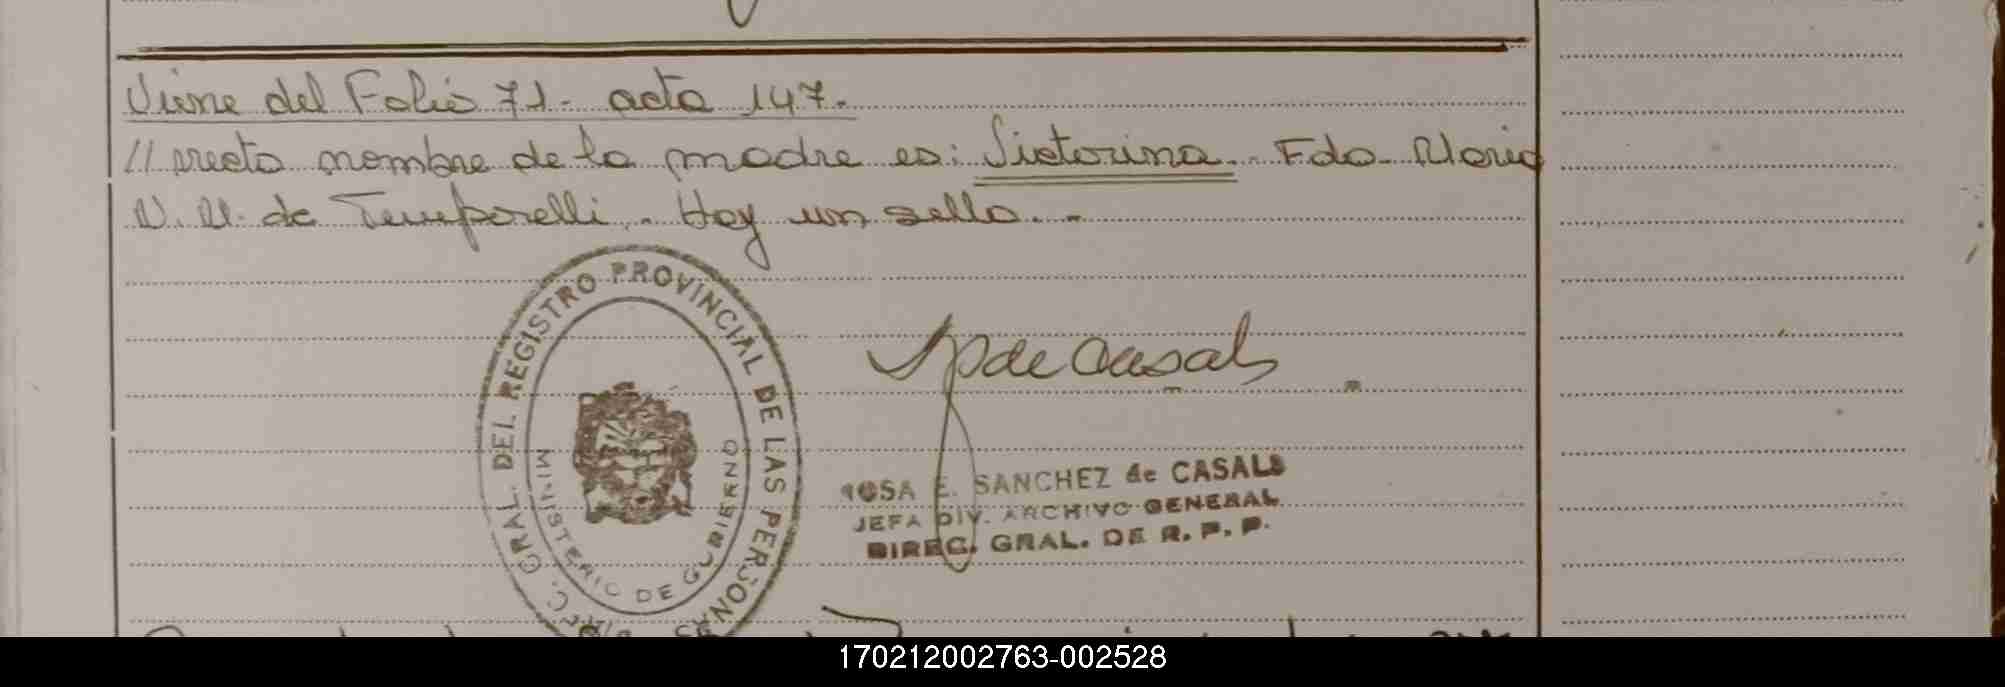 Viene del Folio 71- acta 147.-
//rrecto nombre de la madre es: Victorina.- Fdo- Maria
N. M. de Temporelli.- Hay un sello.-
DIREC. GRAL. DEL REGISTRO PROVINCIAL DE LAS PERSONAS
MINISTERIO DE GOBIERNO
de Casals
ROSA E. SANCHEZ de CASALS
JEFA DIV. ARCHIVO GENERAL
DIREC. GRAL. DE R. P. P.
170212002763-002528